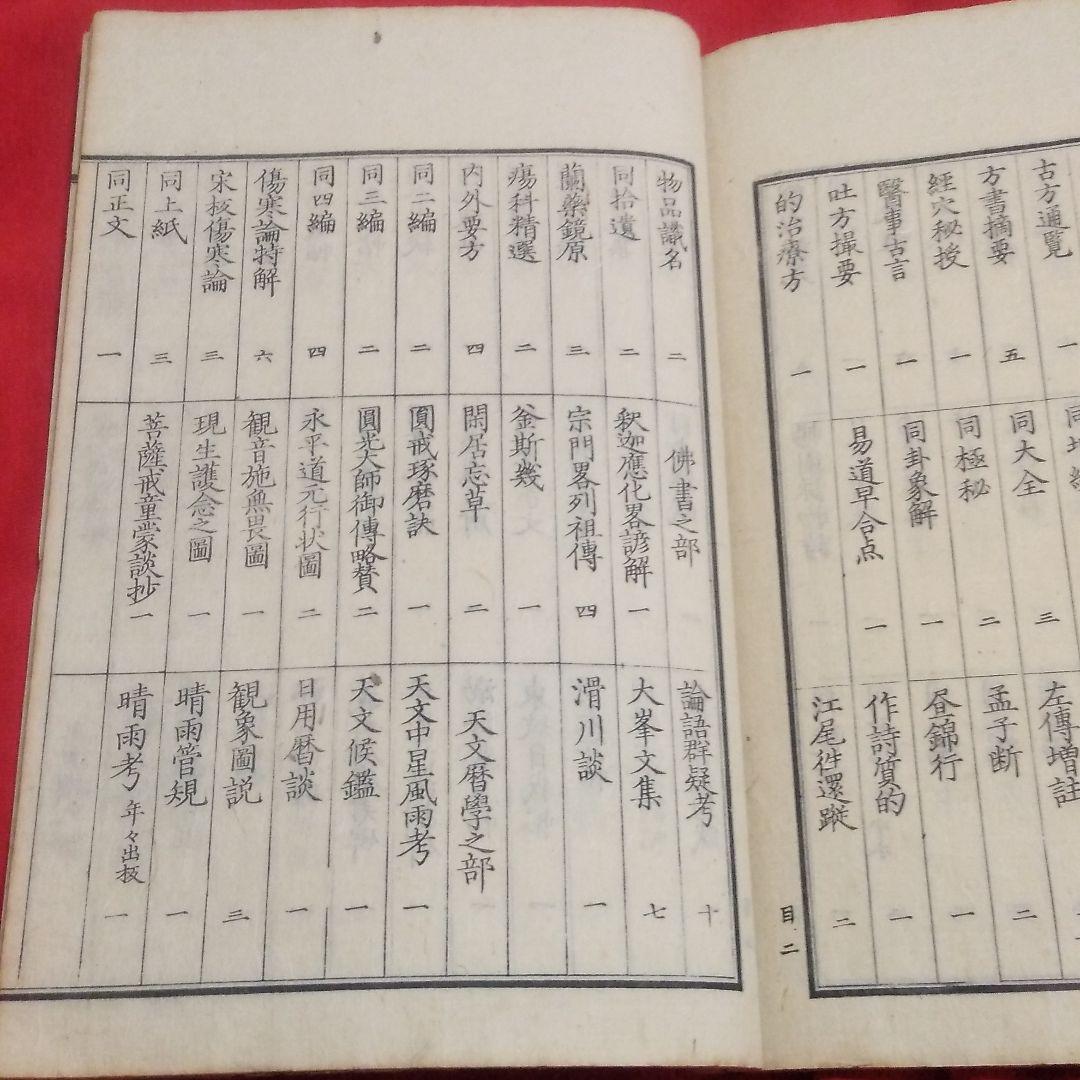 古方通覧 一
方書摘要 五
經穴秘授 一
醫事古言 一
吐方撮要 一
的治療方 一
同大全 三
同極秘 二
同卦象解 一
易道早合点 一
左傳増註
孟子断 二
昼錦行 一
作詩質的 一
江尾往還蹤 二
目二
物品識名 二
同拾遺 二
蘭藥鏡原 三
瘍科精選 二
内外要方 四
同二編 二
同三編 二
同四編 四
傷寒論特解 六
宋板傷寒論 三
同上紙 三
同正文 一
佛書之部
釈迦應化畧諺解 一
宗門畧列祖傳 四
釜斯幾 一
閑居忘草 二
圓戒琢磨訣 一
圓光大師御傳略賛 二
永平道元行状圖 二
観音施無畏圖 一
現生護念之圖 一
菩薩戒童蒙談抄 一
論語群疑考 十
大峯文集 七
滑川談 一
天文暦學之部
天文中星風雨考 一
天文候鑑 一
日用暦談 一
観象圖説 三
晴雨管規 一
晴雨考 年々出板 一